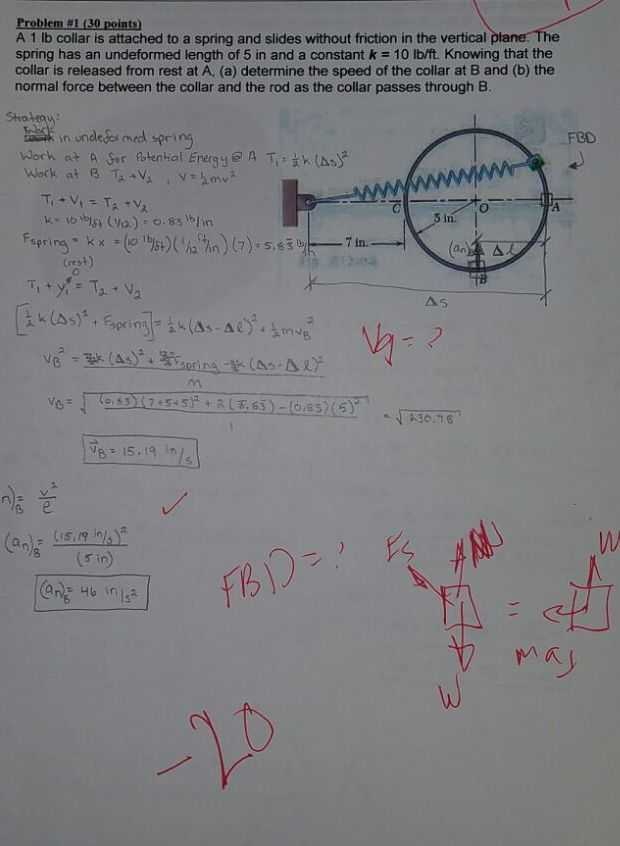 Problem #1 (30 points)
A 1 lb collar is attached to a spring and slides without friction in the vertical plane. The
spring has an undeformed length of 5 in and a constant k = 10 lb/ft. Knowing that the
collar is released from rest at A, (a) determine the speed of the collar at B and (b) the
normal force between the collar and the rod as the collar passes through B.
Strategy:
in undeformed spring
Work at A for Potential Energy @ A T₁ = ½ k (Δs)²
Work at B T₂ + V₂ , V = ½mv²
T₁ + V₁ = T₂ + V₂
k = 10 lb/ft (1/12) = 0.83 lb/in
Fspring = kx = (10 lb/ft)(1/12 ft/in)(7) = 5.83 lb
(rest)
0
T₁ + V₁ = T₂ + V₂
[½ k (Δs)² + Fspring] = ½ k (Δs - Δl)² + ½ mvB²
vB² = k (Δs)² + Fspring - k (Δs - Δl)²
m
vB = √ (0.83)(7+5+5)² + 2(5.83) - (0.83)(5)² = √230.78
1
vB = 15.19 in/s
n)B = v²/e
(an)B = (15.19 in/s)²
(5 in)
(an)B = 46 in/s²
FBD
C
O
A
5 in.
7 in.
(an)
Δl
B
Δs
Vg = ?
FBD = ?
Es
N
W
=
m
W
-20